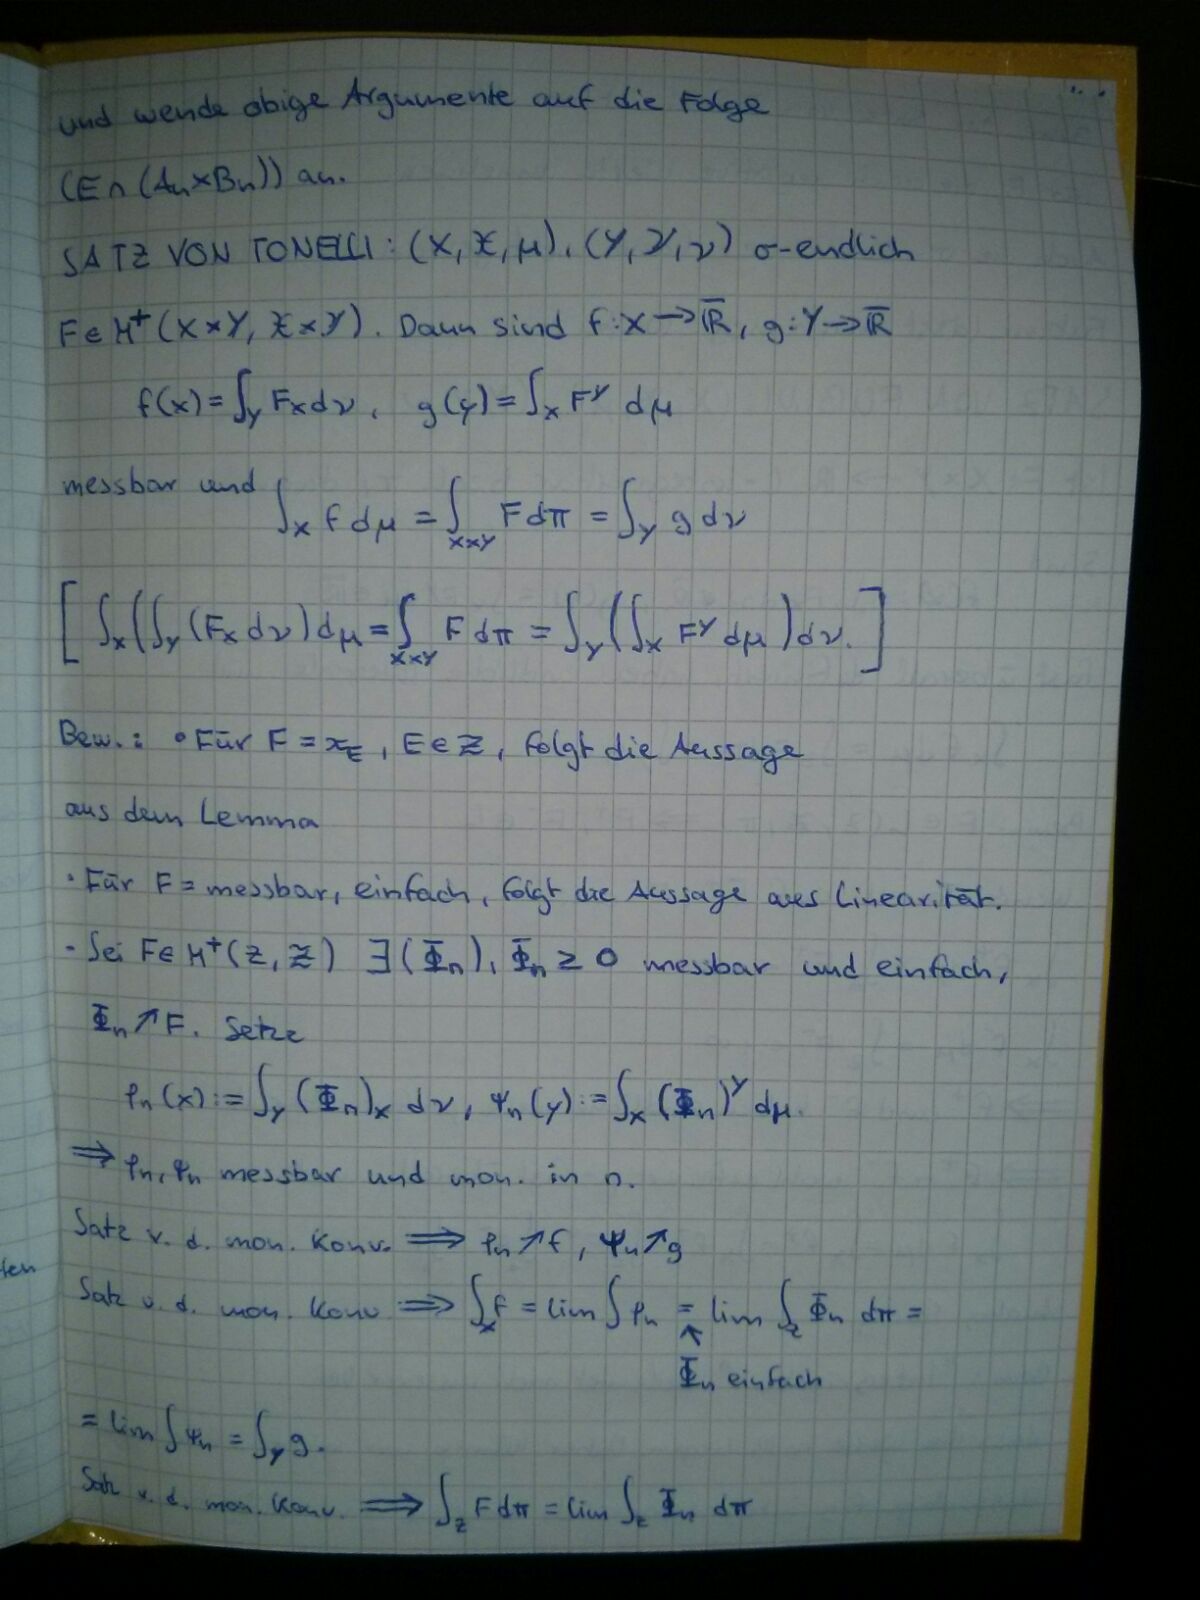 und wende obige Argumente auf die Folge
(E∩(Aₙ×Bₙ)) an.
SATZ VON TONELLI: (X, 𝒳, μ), (Y, 𝒴, ν) σ-endlich
F∈M⁺(X×Y, 𝒳×𝒴). Dann sind f:X→ℝ̄, g:Y→ℝ̄
f(x)=∫_Y Fₓdν, g(y)=∫_X F^y dμ
messbar und ∫_X f dμ = ∫_{X×Y} F dπ = ∫_Y g dν
[∫_X(∫_Y(Fₓ dν)dμ = ∫_{X×Y} F dπ = ∫_Y(∫_X F^y dμ)dν.]
Bew.: • Für F = χ_E, E∈𝒵, folgt die Aussage
aus dem Lemma
• Für F = messbar, einfach, folgt die Aussage aus Linearität.
- Sei F∈M⁺(Z, 𝒵) ∃(Φₙ), Φₙ ≥ 0 messbar und einfach,
Φₙ↗F. Setze
φₙ(x):=∫_Y (Φₙ)ₓ dν, ψₙ(y):=∫_X (Φₙ)^y dμ.
⇒ φₙ, ψₙ messbar und mon. in n.
Satz v. d. mon. Konv. ⇒ φₙ↗f, ψₙ↗g
Satz v. d. mon. Konv ⇒ ∫_X f = lim∫φₙ = lim ∫_Z Φₙ dπ =
↑
Φₙ einfach
= lim∫ψₙ = ∫_Y g.
Satz v. d. mon. Konv. ⇒ ∫_Z F dπ = lim ∫_Z Φₙ dπ